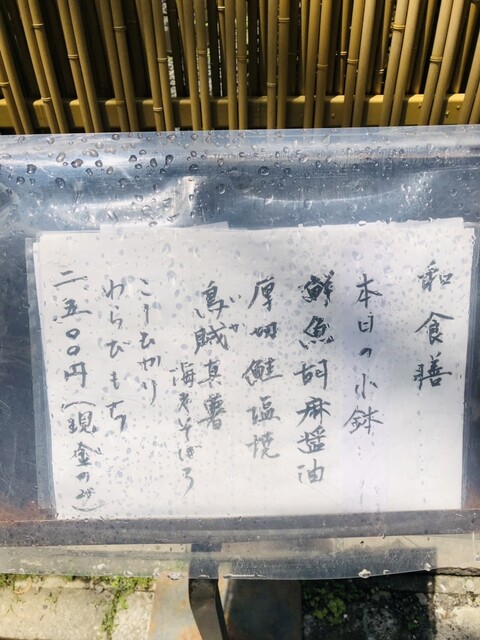 和食膳
本日の小鉢
鮮魚胡麻醤油
厚切鮭塩焼
烏賊真薯
いか
海老そぼろ
こしひかり
わらびもち
二五〇〇円(現金のみ)